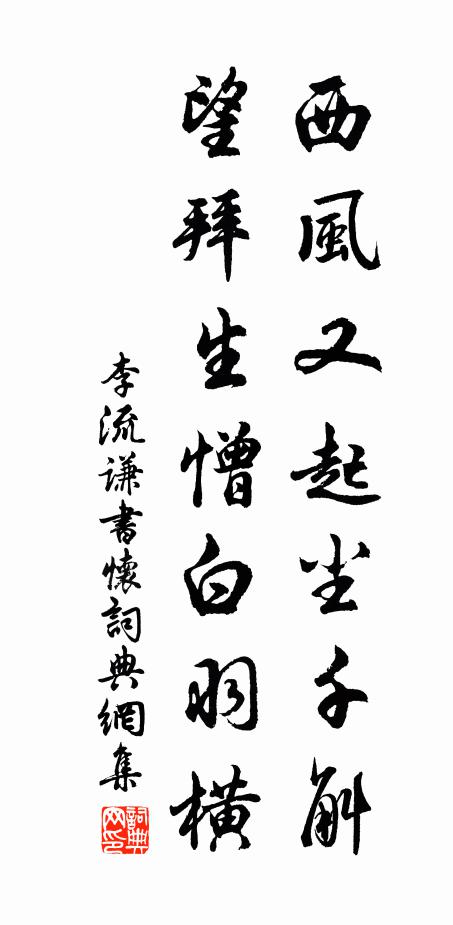 西風又起尘千斛
望拜生憎白羽橫
李流谦書懷詞典網集
詞典網印